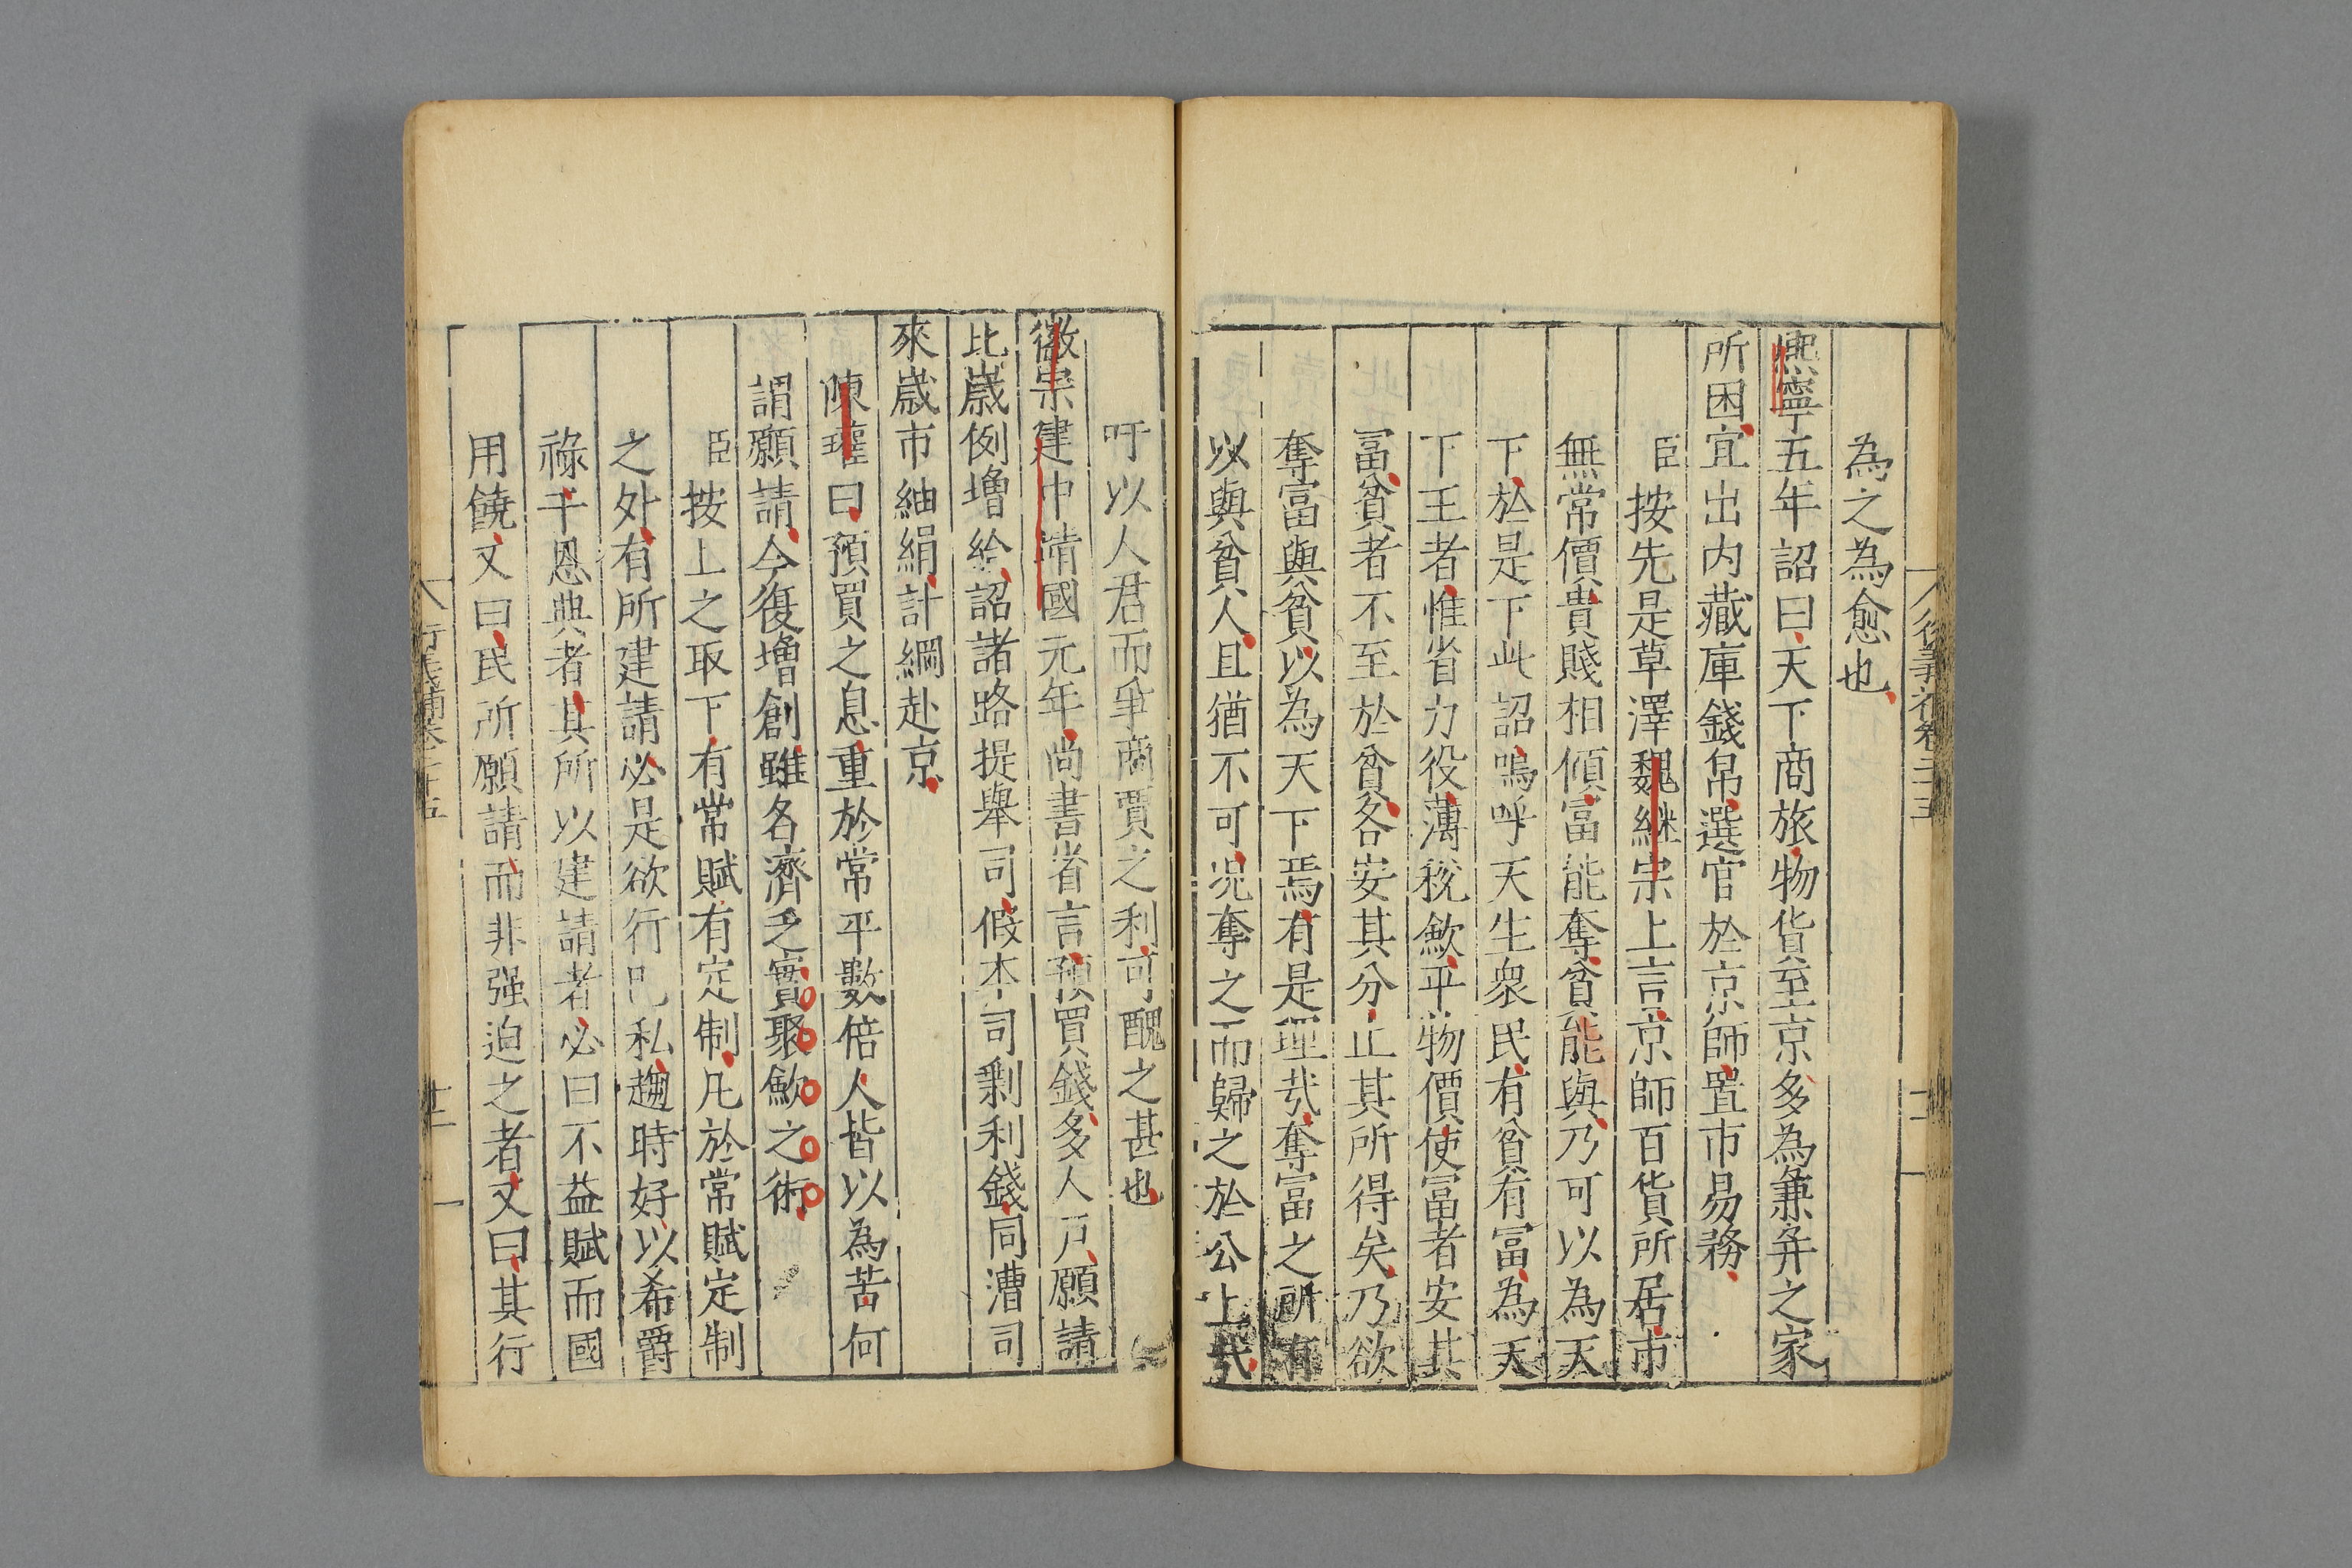 為之為愈也
熈寧五年詔曰天下商旅物貨至京多為兼并之家
所困宜出内藏庫錢帛選官於京師置市易務
臣按先是草澤魏継宗上言京師百貨所居市
無常價貴賤相傾富能奪貧能與乃可以為天
下於是下此詔嗚呼天生衆民有貧有冨為天
下王者惟省力役薄稅斂平物價使冨者安其
冨貧者不至於貧各安其分止其所得矣乃欲
奪富與貧以為天下焉有是理㢤奪富之所有
以與貧人且猶不可况奪之而歸之於公上㢤
吁以人君而爭商賈之利可醜之甚也
徽宗建中靖國元年尚書省言預買錢多人戸願請
比嵗例增給詔諸路提舉司假本司剩利錢同漕司
來嵗市紬絹計綱赴京
陳瓘曰預買之息重於常平數倍人皆以為苦何
謂願請今復增創雖名濟乏實聚斂之術
臣按上之取下有常賦有定制凡於常賦定制
之外有所建請必是欲行己私趨時好以希爵
祿干恩典者其所以建請者必曰不益賦而國
用饒又曰民所願請而非强迫之者又曰其行